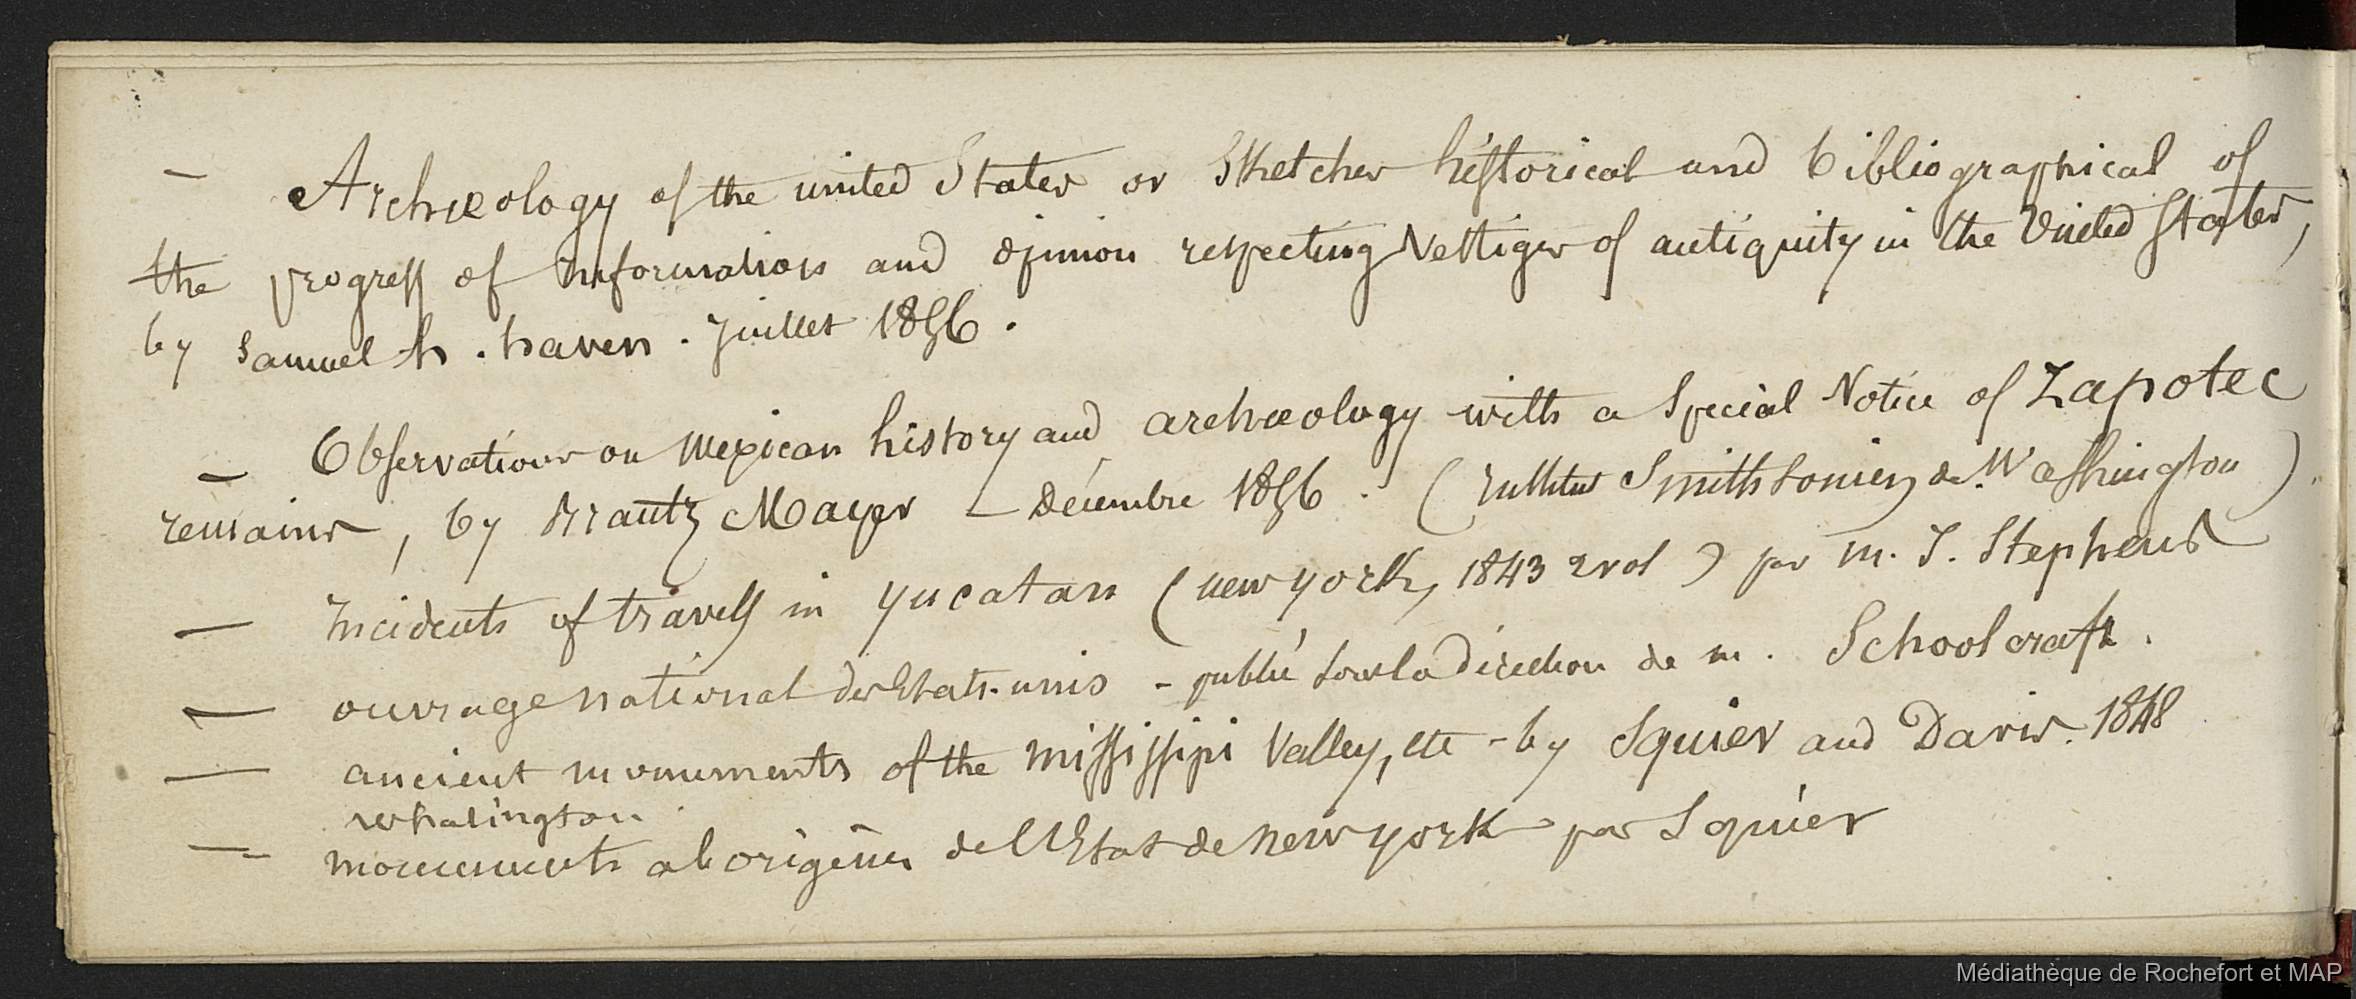 — Archæology of the united States or Sketches historical and bibliographical of
the progress of information and opinion respecting Vestiges of antiquity in the United States,
by Samuel h. haven. Juillet 1856.
— Observations on Mexican history and archæology with a Special Notice of Zapotec
remains, by Brantz Mayer — décembre 1856. ( Smithsonien de Washington )
— Incidents of travels in yucatan ( new york, 1843 2 vol ) par m. J. Stephens
— ouvrage national des Etats-unis - publié sous la direction de m. Schoolcraft.
— ancient monuments of the mississipi Valley, etc - by Squier and Davis. 1848
whasington
— monuments aborigènes de l'Etat de new york par Squier
Médiathèque de Rochefort et MAP